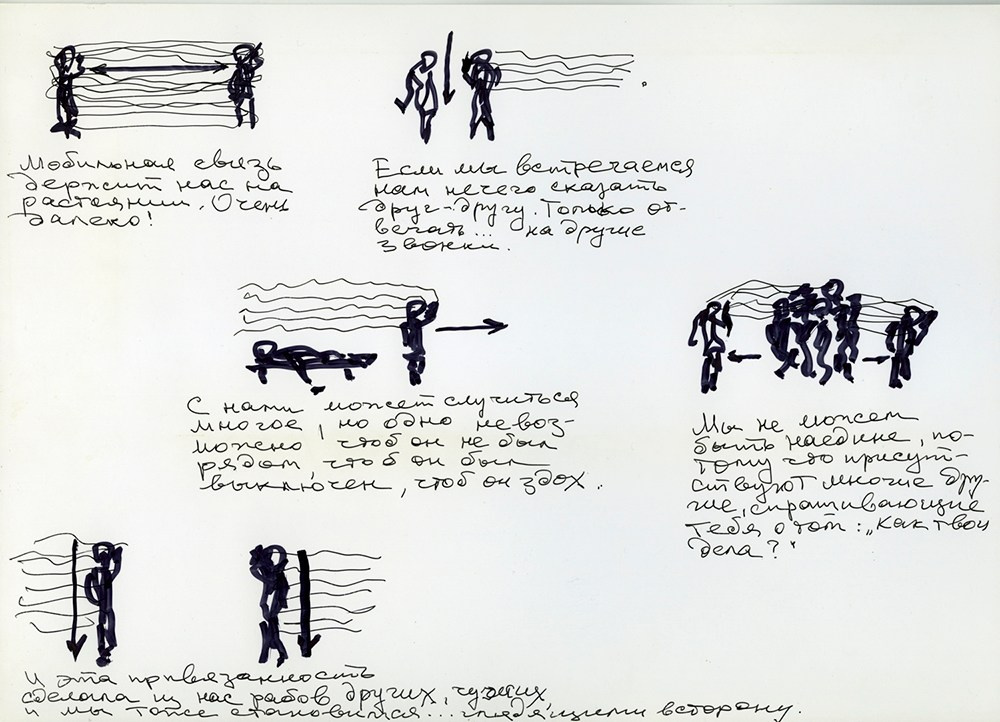 Мобильная связь
держит нас на
растоянии. Очень
далеко!
Если мы встречаемся
нам нечего сказать
друг-другу. Только от-
вечать... на другие
звонки.
С нами может случиться
многое, но одно невоз-
можно, чтоб он не был
рядом, чтоб он был
выключен, чтоб он здох.
Мы не можем
быть наедине, по-
тому что присут-
ствуют многие дру-
гие, спрашивающие
тебя о том: „Как твои
дела?"
И эта привязанность
сделала из нас рабов других, чужих,
и мы тоже становимся... глядящими в сторону.